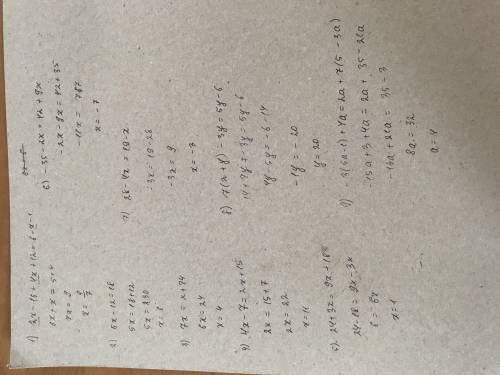 1) 2x - 16 + 4x + 12 + 8 - x - 1
6x + x = 5 + 4
7x = 9
x = 9/7
2) 5x - 12 = 18
5x = 18 + 12
3) 7x = x + 24
6x = 24
x = 4
4) 4x - 7 = 2x + 15
2x = 15 + 7
2x = 22
x = 11
5) 24 + 3x = 9x + 18
24 - 18 = 9x - 3x
6 = 6x
x = 1
6) -35 - 2x = 42 + 9x
-2x - 9x = 42 + 35
x = -7
7) 28 - 4x = 19 - x
-3x = 19 - 28
-3x = 9
x = -3
8) 7(2 + y) - 3y = 5y - 6
14 + 7y - 3y = 5y - 6
4y - 5y = -6 - 14
-1y = -20
y = 20
-3(5a - 1) + 4a = 2a + 7(5 - 3a)
-15a + 3 + 4a = 2a + 35 - 21a
8a = 32
a = 4